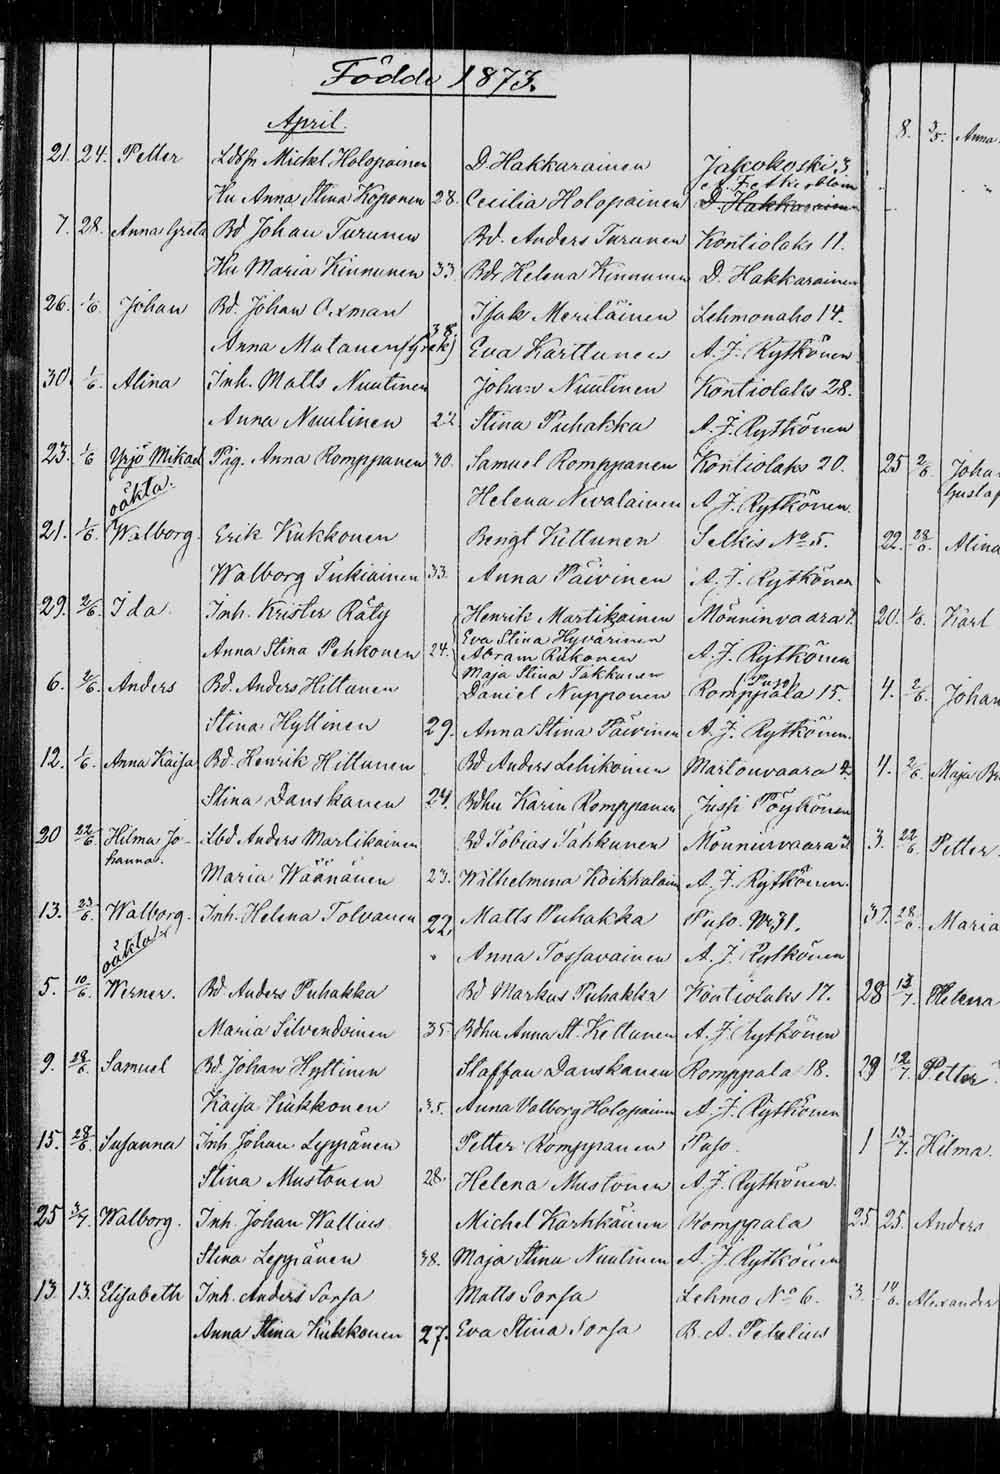 Födde 1873.
April.
21. 24. Petter Michel Holopainen D. Hakkarainen Jakokoski 3.
Hu Anna Stina Koponen 28. Cecilia Holopainen D. Hakkarainen
7. 28. Anna Greta Bd Johan Turunen Bd. Anders Turunen Kontiolaks 11.
Hu Maria Kinnunen 33. Bdr Helena Kinnunen D. Hakkarainen
26. 1/6. Johan Bd. Johan Oxman Isak Meriläinen Lehmonaho 14.
Anna Matanen (Grek) 38. Eva Karttunen A. J. Rytkönen
30. 1/6. Alina Inh. Matts Nuutinen Johan Nuutinen Kontiolaks 28.
Anna Nuutinen 22. Stina Puhakka A. J. Rytkönen
23. 1/6 Yrjö Mikael Pig. Anna Romppanen 30. Samuel Romppanen Kontiolaks 20.
oäkta. Helena Nevalainen A. J. Rytkönen.
21. 1/6. Walborg. Erik Kukkonen Bengt Kettunen Selkis No 5.
Walborg Tukiainen 33. Anna Päivinen A. J. Rytkönen
29. 2/6. Ida. Inh. Krister Räty Henrik Martikainen Mönninvaara 7.
Eva Stina Hyvärinen
Anna Stina Pehkonen 24. Abram Riikonen A. J. Rytkönen
Maja Stina Takkunen (Puso)
6. 2/6. Anders Bd. Anders Hiltunen Daniel Nupponen Romppala 15.
Stina Hyttinen 29. Anna Stina Päivinen A. J. Rytkönen.
12. 1/6. Anna Kaisa Bd. Henrik Hiltunen Bd Anders Lehikoinen Martonvaara 4.
Stina Danskanen 24. Bdhu Karin Romppanen Jussi Pöyhönen
20 22/6. Hilma Jo- Anders Martikainen Bd Tobias Tahkunen Mönninvaara
hanna. Maria Wäänänen 23. Wilhelmina Koikkalainen A. J. Rytkönen.
13. 23/6. Walborg. Inh. Helena Tolvanen 22. Matts Puhakka Puso. No 31.
oäkta " Anna Tossavainen A. J. Rytkönen
5. 10/6. Werner. Bd Anders Puhakka Bd Markus Puhakka Kontiolaks 17.
Maria Silvendoinen 35. Bdhu Anna St. Kettunen A. J. Rytkönen
9. 28/6. Samuel Bd. Johan Hyttinen Staffan Danskanen Romppala 18.
Kaisa Kukkonen 35. Anna Valborg Holopainen A. J. Rytkönen
15. 28/6. Susanna Inh. Johan Leppänen Petter Romppanen Puso.
Stina Mustonen 28. Helena Mustonen A. J. Rytkönen.
25 3/7. Walborg. Inh. Johan Wallius Michel Karhkäinen Romppala
Stina Leppänen 38. Maja Stina Nuutinen A. J. Rytkönen
13. 13. Elisabeth Inh. Anders Sorsa Matts Sorsa Lehmo No 6.
Anna Stina Kukkonen 27. Eva Stina Sorsa B. A. Petrelius
8. 3/5. Anna
25 2/6. Johan
Gustaf
22. 28/6. Alina
20. 1/6. Karl
4. 2/6. Johan
4. 2/6. Maja
3. 22/6. Petter.
37. 28/6. Maria
28 13/7. Helena
29 12/7. Petter
1 13/7. Hilma.
25. 25. Anders
3. 10/6. Alexander